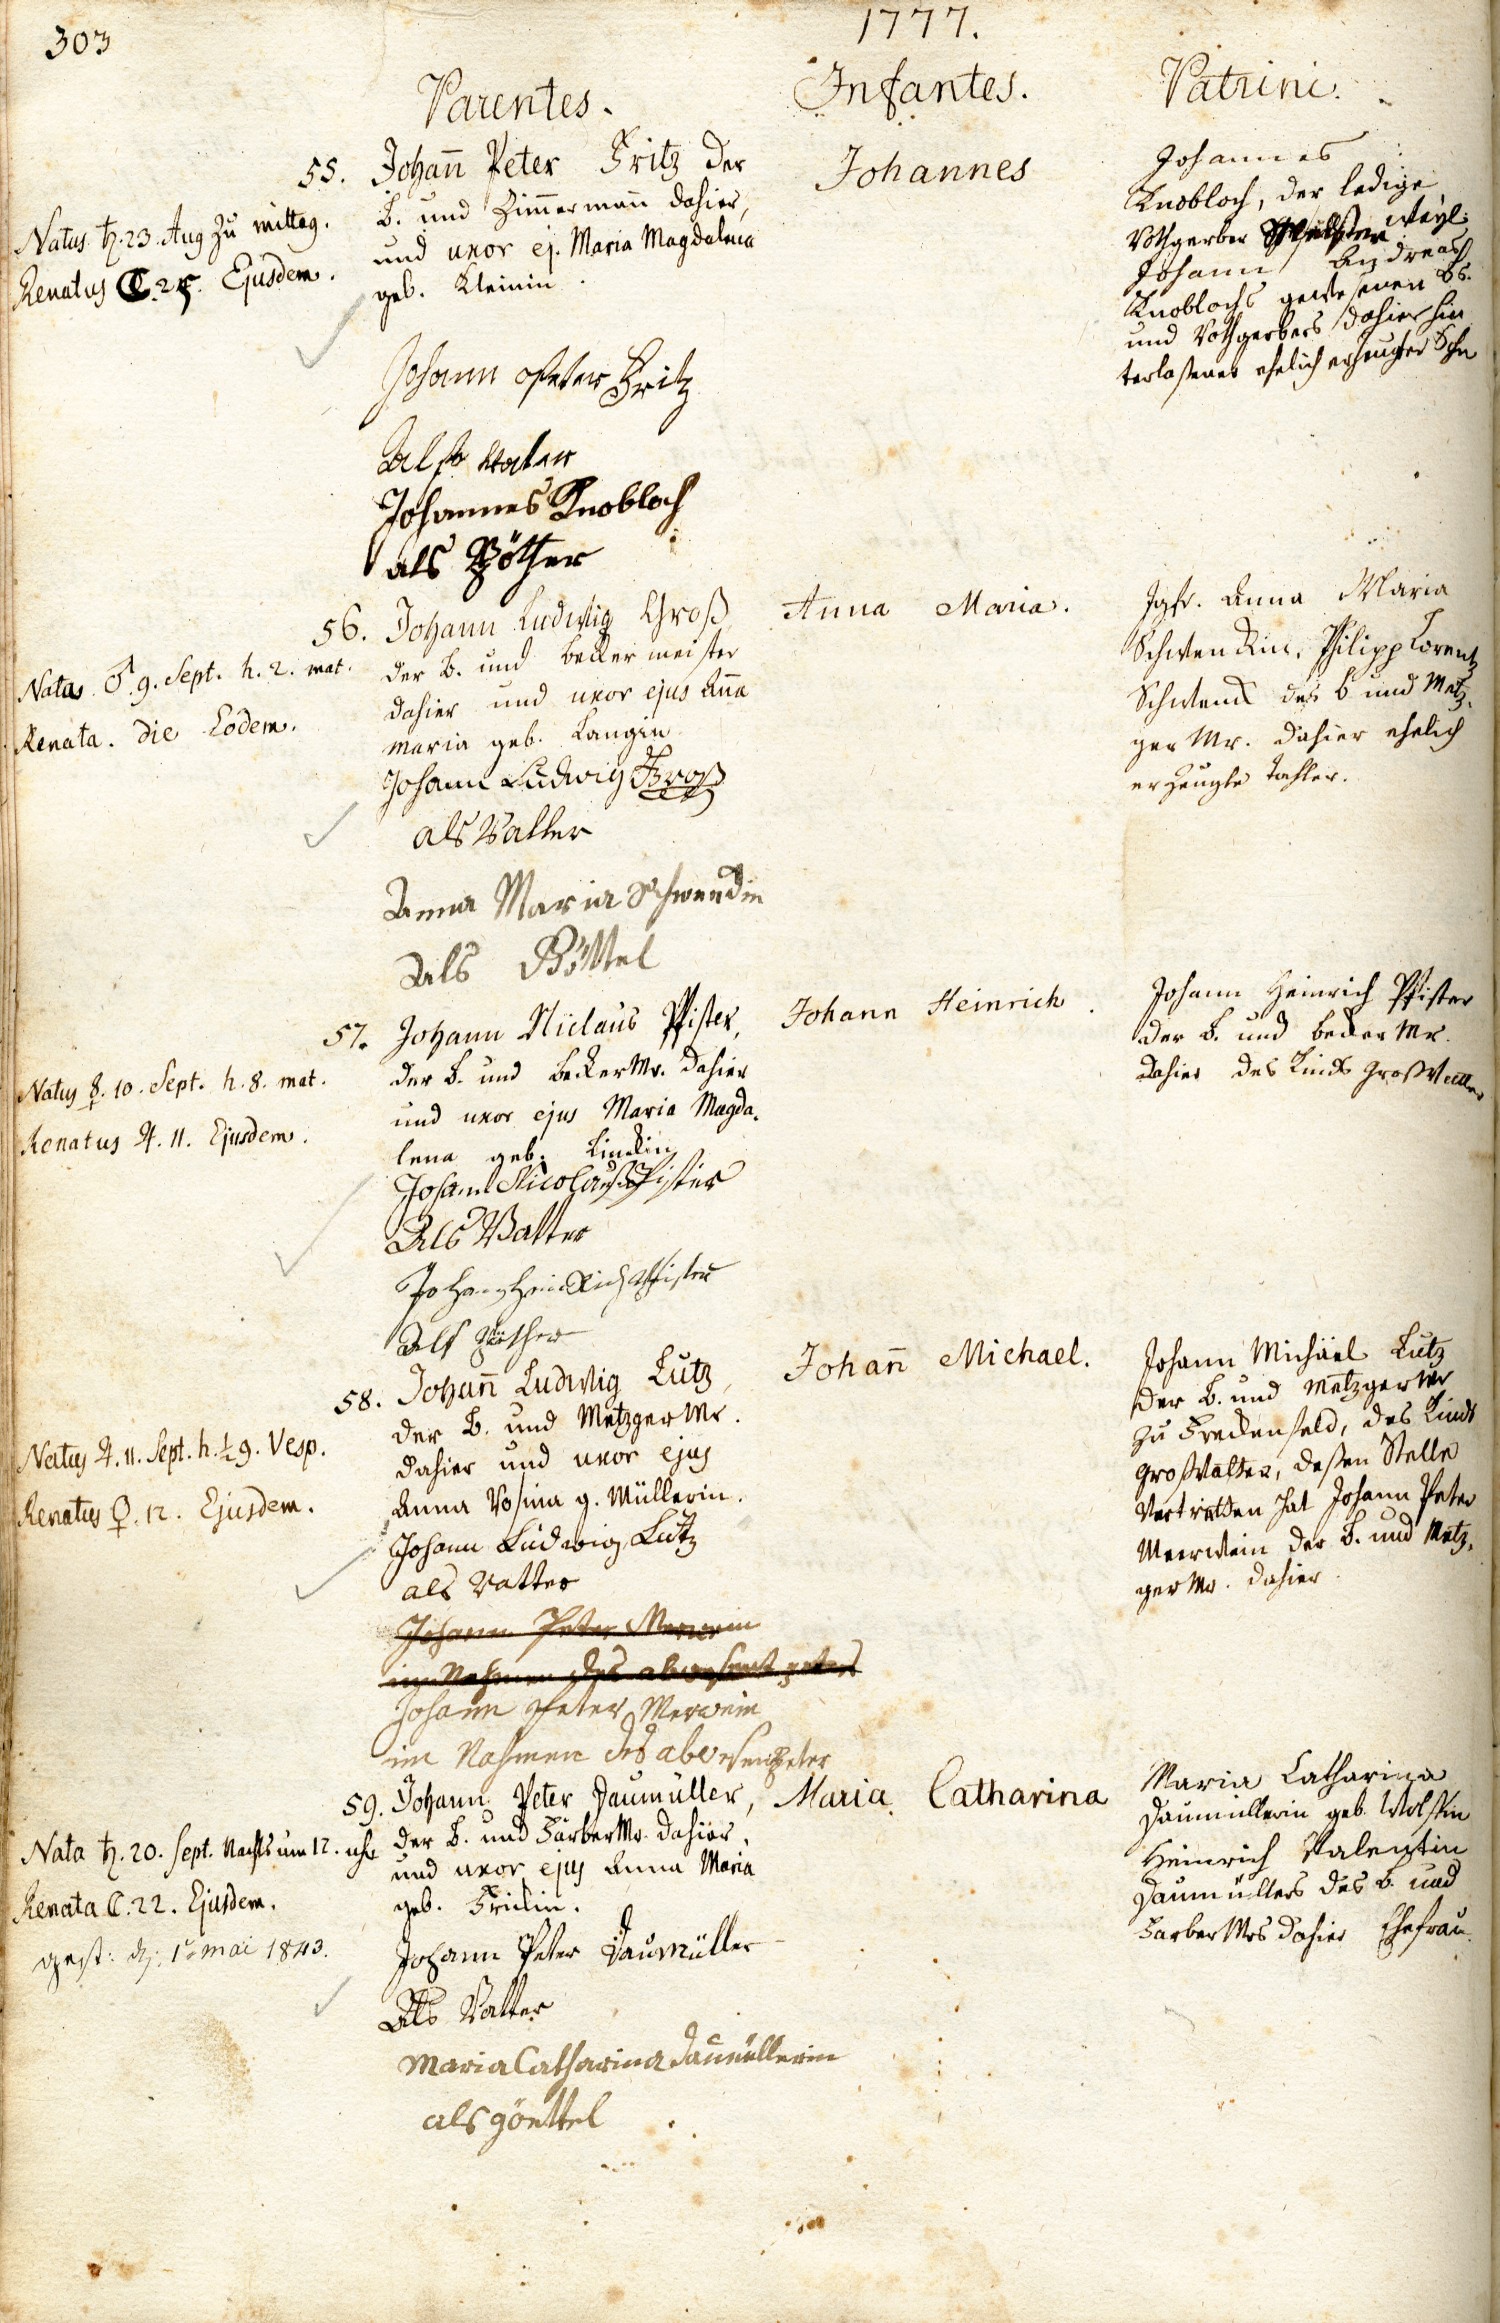 303
1777.
Parentes.
Infantes.
Patrini.
55.
Johan̄ Peter Fritz der
B. und Zim̄erman̄ dahier,
und uxor ej. Maria Magdalena
geb. Kleinin.
Natus ♄. 23. Aug zu mittag.
Renatus ☾. 25. Ejusdem.
Johannes
Johannes
Knobloch, der ledige
Rothgerber weyl.
Johann Andreas
Knoblochs gewesenen Bs.
und Rothgerbers dahier hin
terlaßener ehelich erzeugter Sohn
Johann Peter Fritz
Als Vater
Johannes Knobloch
als Göther
56.
Johann Ludwig Groß
der B. und becker meister
dahier und uxor ejus Añа
maria geb. Langin
Natas ♂. 9. Sept. h. 2. mat.
Renata. die Eodem.
Anna Maria.
Jgfr. Anna Maria
Schwenckin, Philipp Lorentz
Schwenck des b und Metz,
ger Mr. dahier ehelich
erzeugte Tochter.
Johann Ludwig Groß
als Vatter
Anna Maria Schwenckin
Als Göttel
57.
Johann Niclaus Pfister,
der B. und Becker Mr. dahier
und uxor ejus Maria Magda,
lena geb. Linckin
Natus ☿. 10. Sept. h. 8. mat.
Renatus ♃. 11. Ejusdem.
Johann Heinrich.
Johann Heinrich Pfister
der B. und becker Mr.
dahier des Kinds Großvatter
Johann Nicolauß Pfister
Als Vatter
Johann Heinrich Pfister
Als Göther
58.
Johan̄ Ludwig Lutz,
der B. und Metzger Mr.
dahier und uxor ejus
Anna Rosina g. Müllerin.
Natus ♃. 11. Sept. h. ½ 9. Vesp.
Renatus ♀. 12. Ejusdem.
Johan̄ Michael.
Johann Michäel Lutz
der B. und Metzger Mr
zu Freckenfeld, des Kinds
Großvatter, deßen Stelle
Vertretten hat Johann Peter
Meerwein der B. und Metz,
ger Mr. dahier.
Johann Ludwig Lutz
als Vatter
Johann Peter Merwein
im Nahmen des abwesent peters
Johann Peter Merwein
im Nahmen des abwesenpeter
59.
Johann Peter Daumüller,
der B. und Färber Mr. dahier,
und uxor ejus Anna Maria
geb. Frickin.
Nata ♄. 20. Sept. Nachts um 12. uhr
Renata ☾. 22. Ejusdem.
gest: d. 1. mai 1843.
Maria Catharina
Maria Catharina
Daumüllerin geb. Wolffin
Heinrich Valentin
Daumüllers des B. und
Färber Mrs dahier Ehefrau.
Johann Peter Daumüller
Als Vatter
Maria Catharina daumüllerin
als göettel